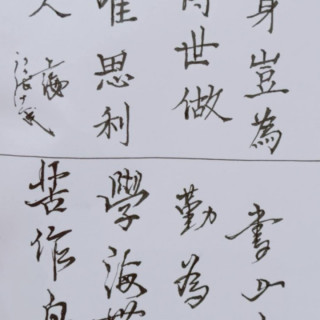 身豈為
世做
思利
人
上海
書山
勤為
學海無
苦作舟